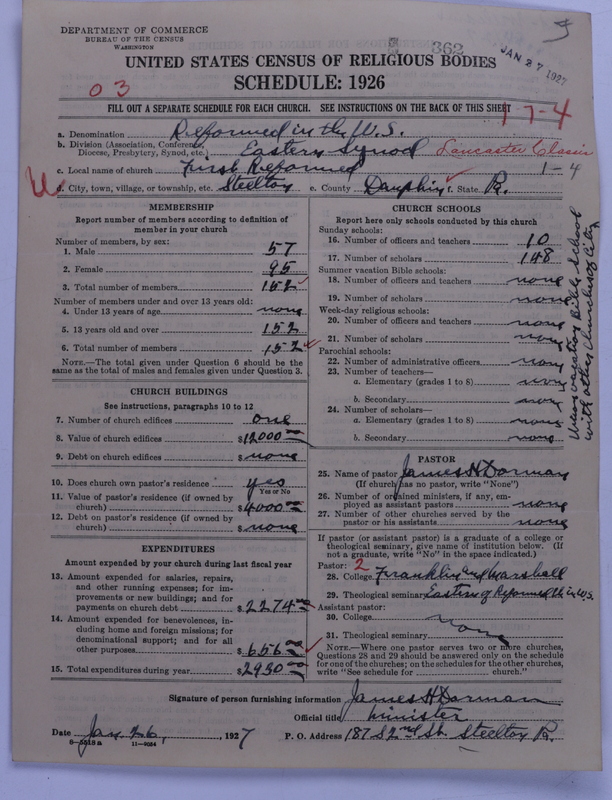 DEPARTMENT OF COMMERCE
BUREAU OF THE CENSUS
WASHINGTON
362
JAN 27 1927
UNITED STATES CENSUS OF RELIGIOUS BODIES
SCHEDULE: 1926
03
FILL OUT A SEPARATE SCHEDULE FOR EACH CHURCH. SEE INSTRUCTIONS ON THE BACK OF THIS SHEET
1-7-4
a. Denomination Reformed in the U.S.
b. Division (Association, Conference, Diocese, Presbytery, Synod, etc.) Eastern Synod Lancaster Classis
c. Local name of church First Reformed 1-4
d. City, town, village, or township, etc. Steelton e. County Dauphin f. State Pa.
MEMBERSHIP
Report number of members according to definition of member in your church
Number of members, by sex:
1. Male 57
2. Female 95
3. Total number of members 152
Number of members under and over 13 years old:
4. Under 13 years of age none
5. 13 years old and over 152
6. Total number of members 152
NOTE.—The total given under Question 6 should be the same as the total of males and females given under Question 3.
CHURCH BUILDINGS
See instructions, paragraphs 10 to 12
7. Number of church edifices one
8. Value of church edifices $12000.00
9. Debt on church edifices $none
10. Does church own pastor's residence yes
Yes or No
11. Value of pastor's residence (if owned by church) $4000.00
12. Debt on pastor's residence (if owned by church) $none
EXPENDITURES
Amount expended by your church during last fiscal year
13. Amount expended for salaries, repairs, and other running expenses; for improvements or new buildings; and for payments on church debt $2274.00
14. Amount expended for benevolences, including home and foreign missions; for denominational support; and for all other purposes $656.00
15. Total expenditures during year $2930.00
CHURCH SCHOOLS
Report here only schools conducted by this church
Sunday schools:
16. Number of officers and teachers 10
17. Number of scholars 148
Summer vacation Bible schools:
18. Number of officers and teachers none
19. Number of scholars none
Week-day religious schools:
20. Number of officers and teachers none
21. Number of scholars none
Parochial schools:
22. Number of administrative officers none
23. Number of teachers—
a. Elementary (grades 1 to 8) none
b. Secondary none
24. Number of scholars—
a. Elementary (grades 1 to 8) none
b. Secondary none
vacation Bible School
with other churches of city
PASTOR
25. Name of pastor James H Dorman
(If church has no pastor, write "None")
26. Number of ordained ministers, if any, employed as assistant pastors none
27. Number of other churches served by the pastor or his assistants none
If pastor (or assistant pastor) is a graduate of a college or theological seminary, give name of institution below. (If not a graduate, write "No" in the space indicated.)
Pastor: 2
28. College Franklin and Marshall
29. Theological seminary Eastern of Reformed Ch in U.S.
Assistant pastor:
30. College none
31. Theological seminary
NOTE.—Where one pastor serves two or more churches, Questions 28 and 29 should be answered only on the schedule for one of the churches; on the schedules for the other churches, write "See schedule for church."
Signature of person furnishing information James H Dorman
Official title minister
Date Jan. 26, 1927 P. O. Address 187 S 2nd St. Steelton Pa.
8-5518a 11-9034